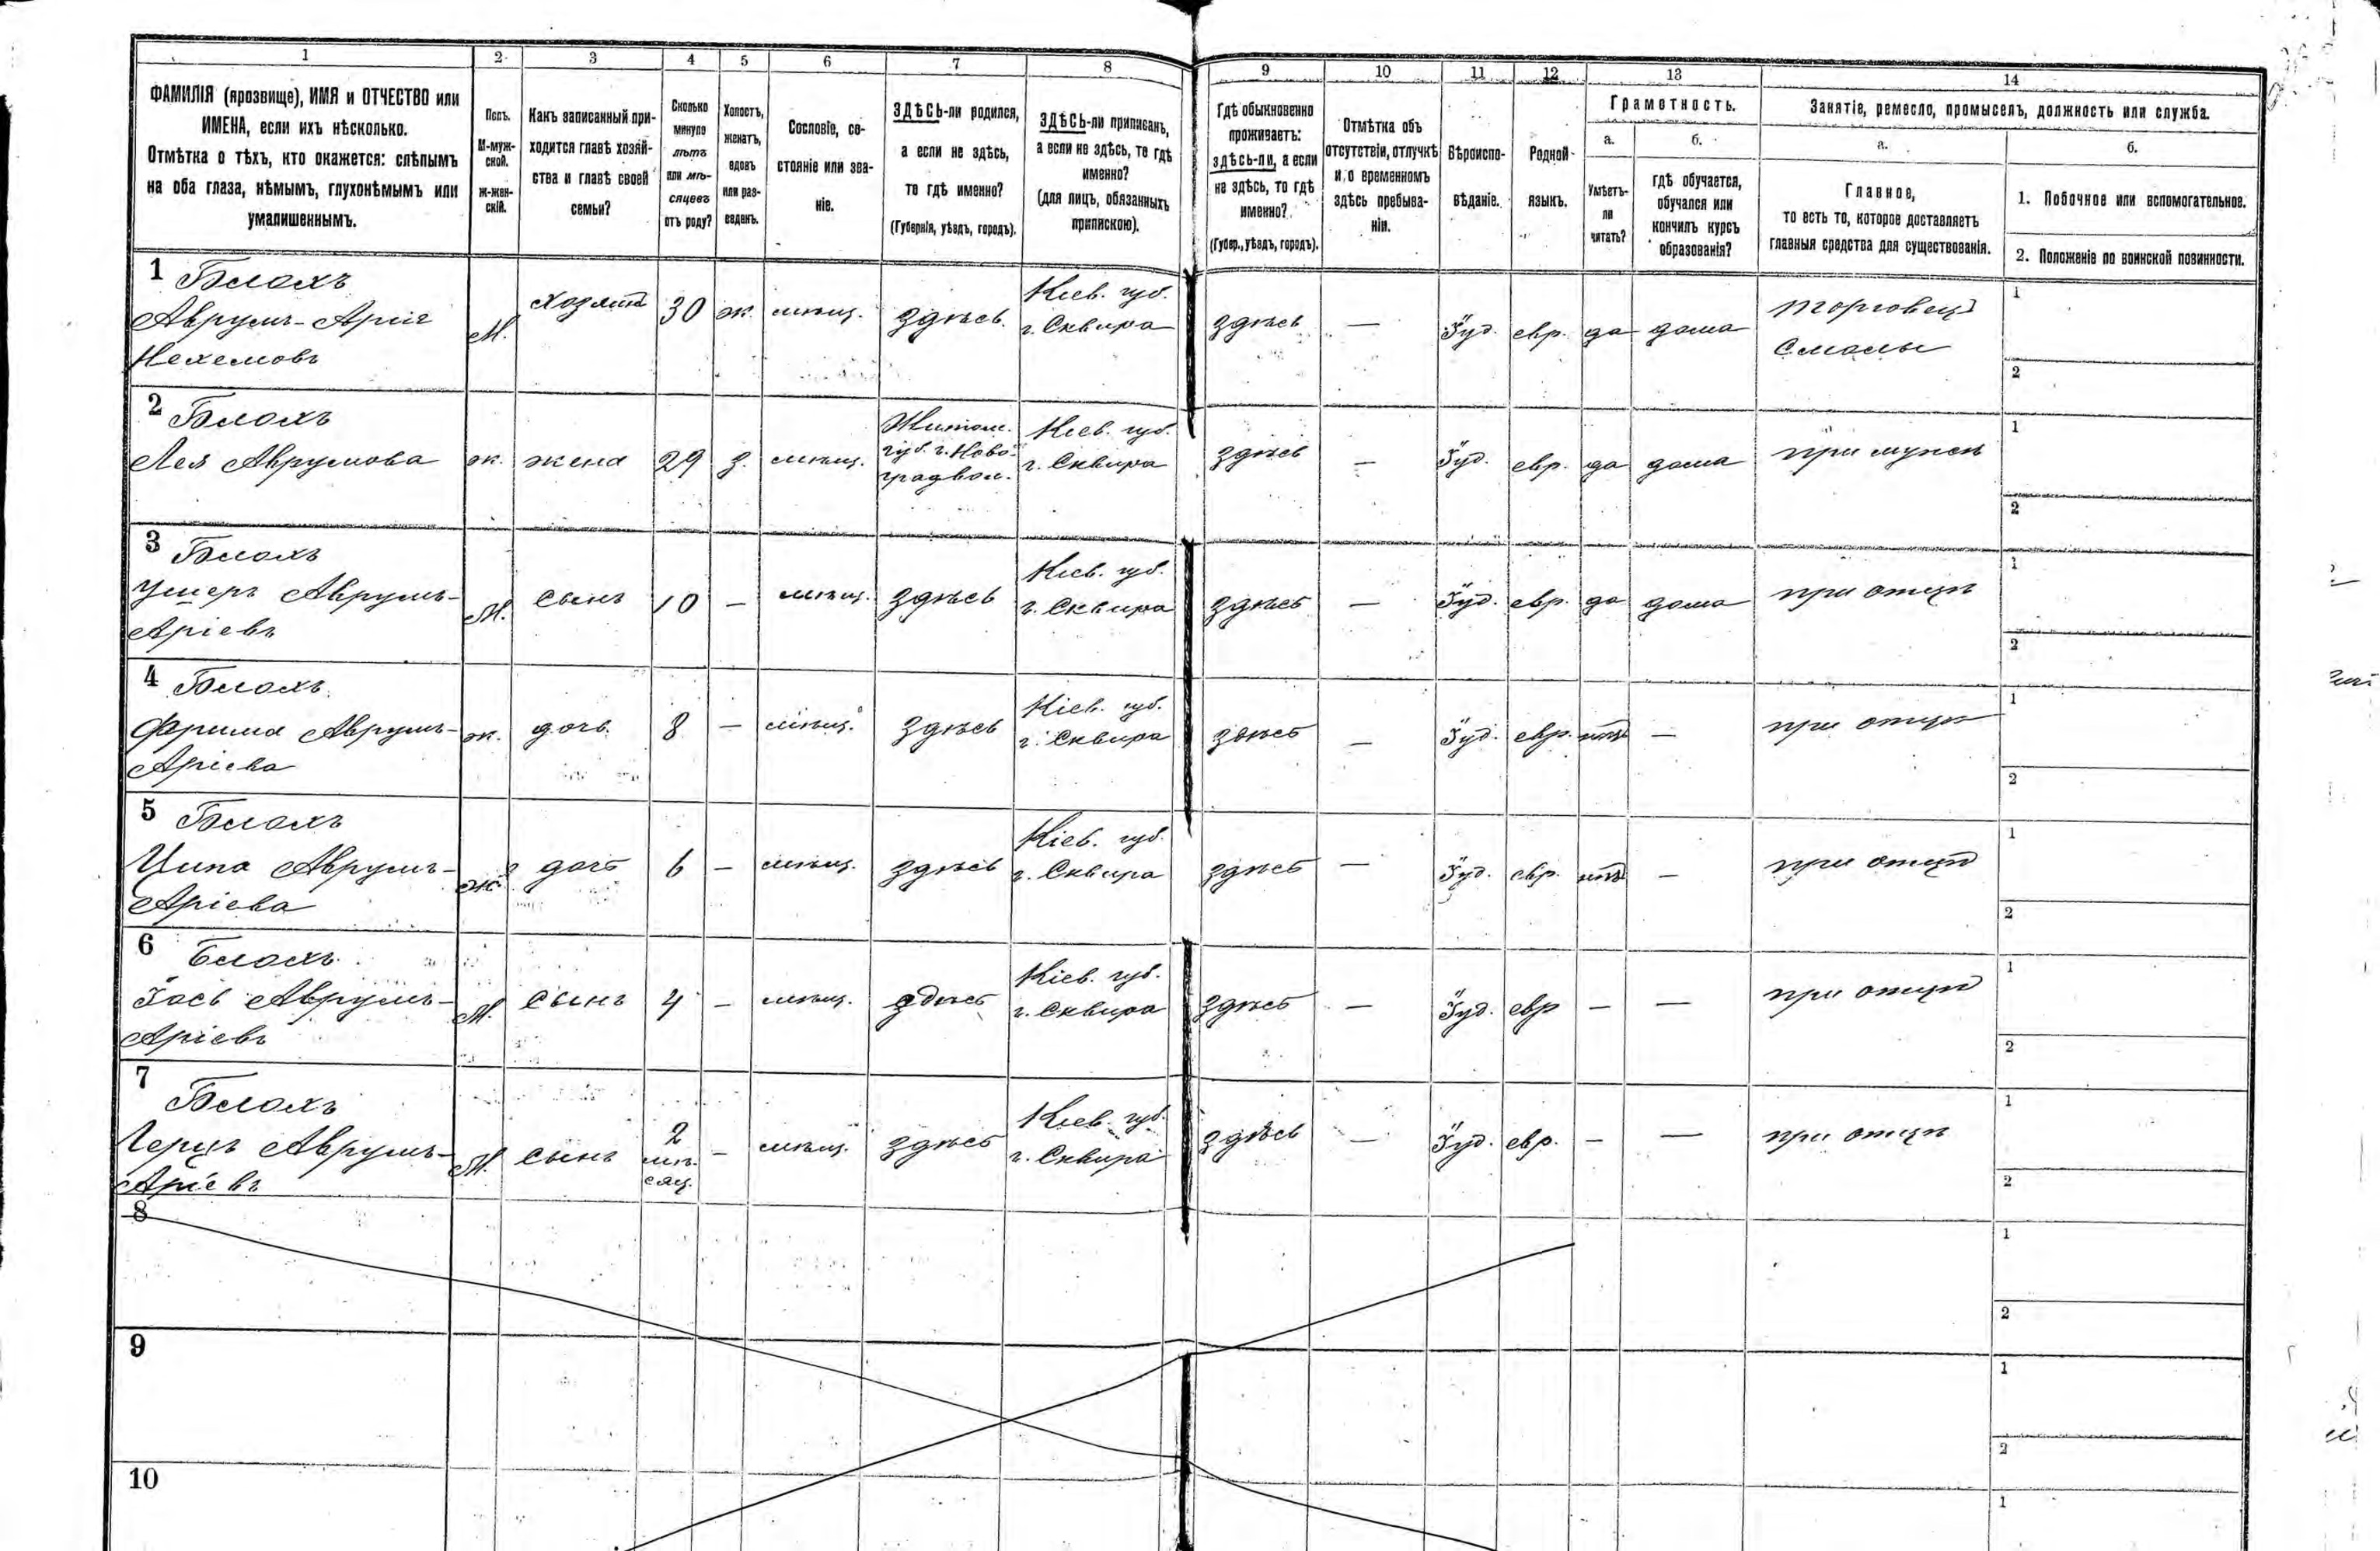 1 2 3 4 5 6 7 8 9 10 11 12 13 14
ФАМИЛІЯ (прозвище), ИМЯ и ОТЧЕСТВО или
ИМЕНА, если ихъ нѣсколько.
Отмѣтка о тѣхъ, кто окажется: слѣпымъ
на оба глаза, нѣмымъ, глухонѣмымъ или
умалишеннымъ.
Полъ.
М-муж-
ской.
Ж-жен-
скій.
Какъ записанный при-
ходится главѣ хозяй-
ства и главѣ своей
семьи?
Сколько
минуло
лѣтъ
или мѣ-
сяцевъ
отъ роду?
Холостъ,
женатъ,
вдовъ
или раз-
веденъ.
Сословіе, со-
стояніе или зва-
ніе.
ЗДѢСЬ-ли родился,
а если не здѣсь,
то гдѣ именно?
(Губернія, уѣздъ, городъ).
ЗДѢСЬ-ли приписанъ,
а если не здѣсь, то гдѣ
именно?
(для лицъ, обязанныхъ
припискою).
Гдѣ обыкновенно
проживаетъ:
здѣсь-ли, а если
не здѣсь, то гдѣ
именно?
(Губер., уѣздъ, городъ).
Отмѣтка объ
отсутствіи, отлучкѣ
и о временномъ
здѣсь пребыва-
ніи.
Вѣроиспо-
вѣданіе.
Родной
языкъ.
Грамотность.
а.
Умѣетъ-
ли
читать?
б.
гдѣ обучается,
обучался или
кончилъ курсъ
образованія?
Занятіе, ремесло, промыселъ, должность или служба.
а.
Главное,
то есть то, которое доставляетъ
главныя средства для существованія.
б.
1. Побочное или вспомогательное.
2. Положеніе по воинской повинности.
1 Блохъ
Аврумъ-Аріе
Нехемовъ
М. хозяинъ 30 ж. мѣщ. здѣсь.
Кіев. губ.
г. Сквира
здѣсь — Іуд. евр. да дома
торговецъ
смолы
1
2
2 Блохъ
Лея Аврумова
ж. жена 29 з. мѣщ.
Житом.
губ. г. Ново-
градвол.
Кіев. губ.
г. Сквира
здѣсь — Іуд. евр. да дома при мужѣ
1
2
3 Блохъ
Ушеръ Аврумъ-
Аріевъ
М. сынъ 10 — мѣщ. здѣсь
Кіев. губ.
г. Сквира
здѣсь — Іуд. евр. да дома при отцѣ
1
2
4 Блохъ
Фрима Аврумъ-
Аріева
ж. дочь 8 — мѣщ. здѣсь
Кіев. губ.
г. Сквира
здѣсь — Іуд. евр. нѣтъ — при отцѣ
1
2
5 Блохъ
Ципа Аврумъ-
Аріева
ж. дочь 6 — мѣщ. здѣсь
Кіев. губ.
г. Сквира
здѣсь — Іуд. евр. нѣтъ — при отцѣ
1
2
6 Блохъ
Іось Аврумъ-
Аріевъ
М. сынъ 4 — мѣщ. здѣсь
Кіев. губ.
г. Сквира
здѣсь — Іуд. евр — — при отцѣ
1
2
7
Блохъ
Герцъ Аврумъ-
Аріевъ
М. сынъ
2
мѣ-
сяц.
— мѣщ. здѣсь
Кіев. губ.
г. Сквира
здѣсь — Іуд. евр. — — при отцѣ
1
2
8
1
2
9
1
2
10
1